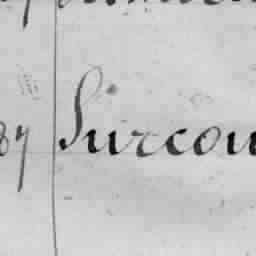 87 Surcou